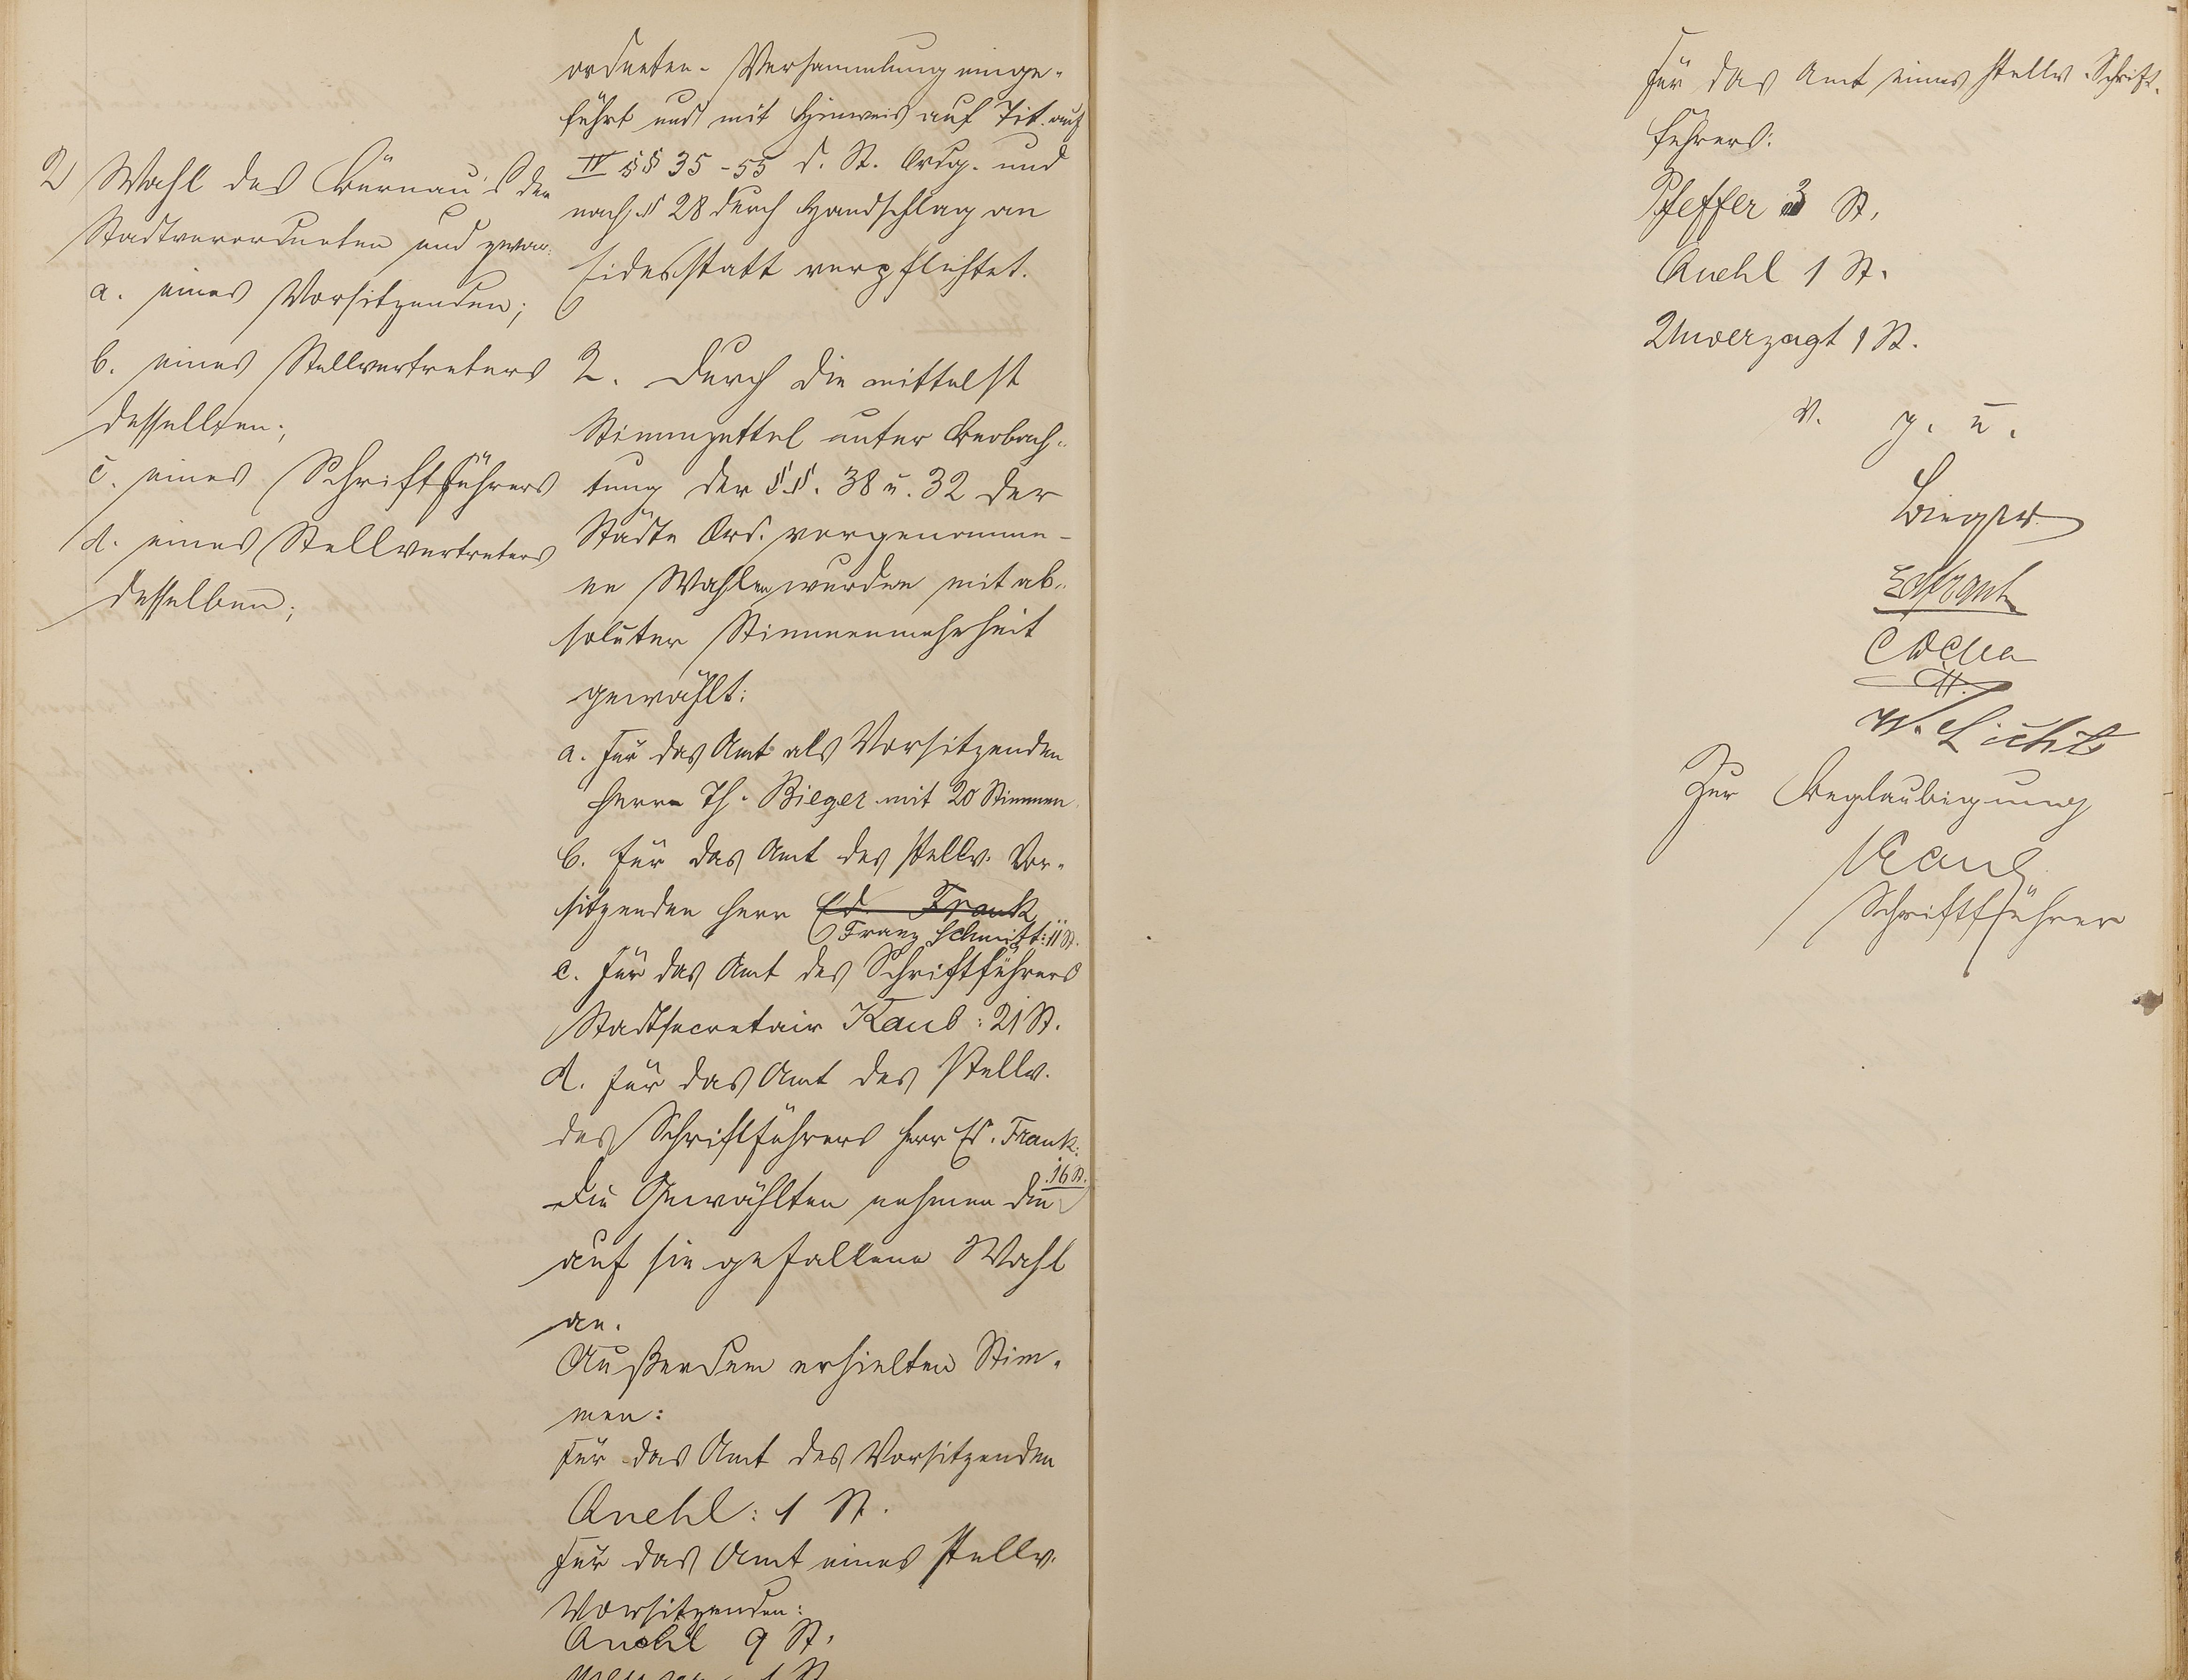 2) Wahl des Büreau's der
Stadtverordneten und zwar:
a. eines Vorsitzenden;
b. eines Stellvertreters
desselben;
c. eines Schriftführers
d. eines Stellvertreters
desselben;
ordneten-Versammlung einge-
führt und mit Hinweis auf Tit.
IV §§ 35-55 d. St. Ordg. und
nach § 28 durch Handschlag an
Eidesstatt verpflichtet.
2. Durch die mittelst
Stimmzettel unter Beobach-
tung der §§. 38 u. 32 der
Städte Ord. vorgenomme-
ne Wahlen wurden mit ab-
soluter Stimmenmehrheit
gewählt:
a. Für das Amt als Vorsitzenden
Herrn Th. Bieger mit 20 Stimmen
b. Für das Amt des stellv. Vor-
sitzenden Herr Ed. Frank
Franz Schmitt: 11 St.
c. Für das Amt des Schriftführers
Stadtsecretair Kaub: 21 St.
d. Für das Amt des Stellv.
des Schriftführers Herr Ed. Frank:
16 St.
Die Gewählten nehmen die
auf sie gefallene Wahl
an.
Außerdem erhielten Stim-
men:
Für das Amt des Vorsitzenden
Anehl: 1 St.
Für das Amt eines stellv.
Vorsitzenden:
Anehl 9 St.
1 St.
Für das Amt eines stellv. Schrift-
führers:
Pfeffer 3 St.
Anehl 1 St.
Unverzagt 1 St.
v. g. u.
Bieger
EdFrank
W. Lichts
Zur Beglaubigung
Kaub
Schriftführer